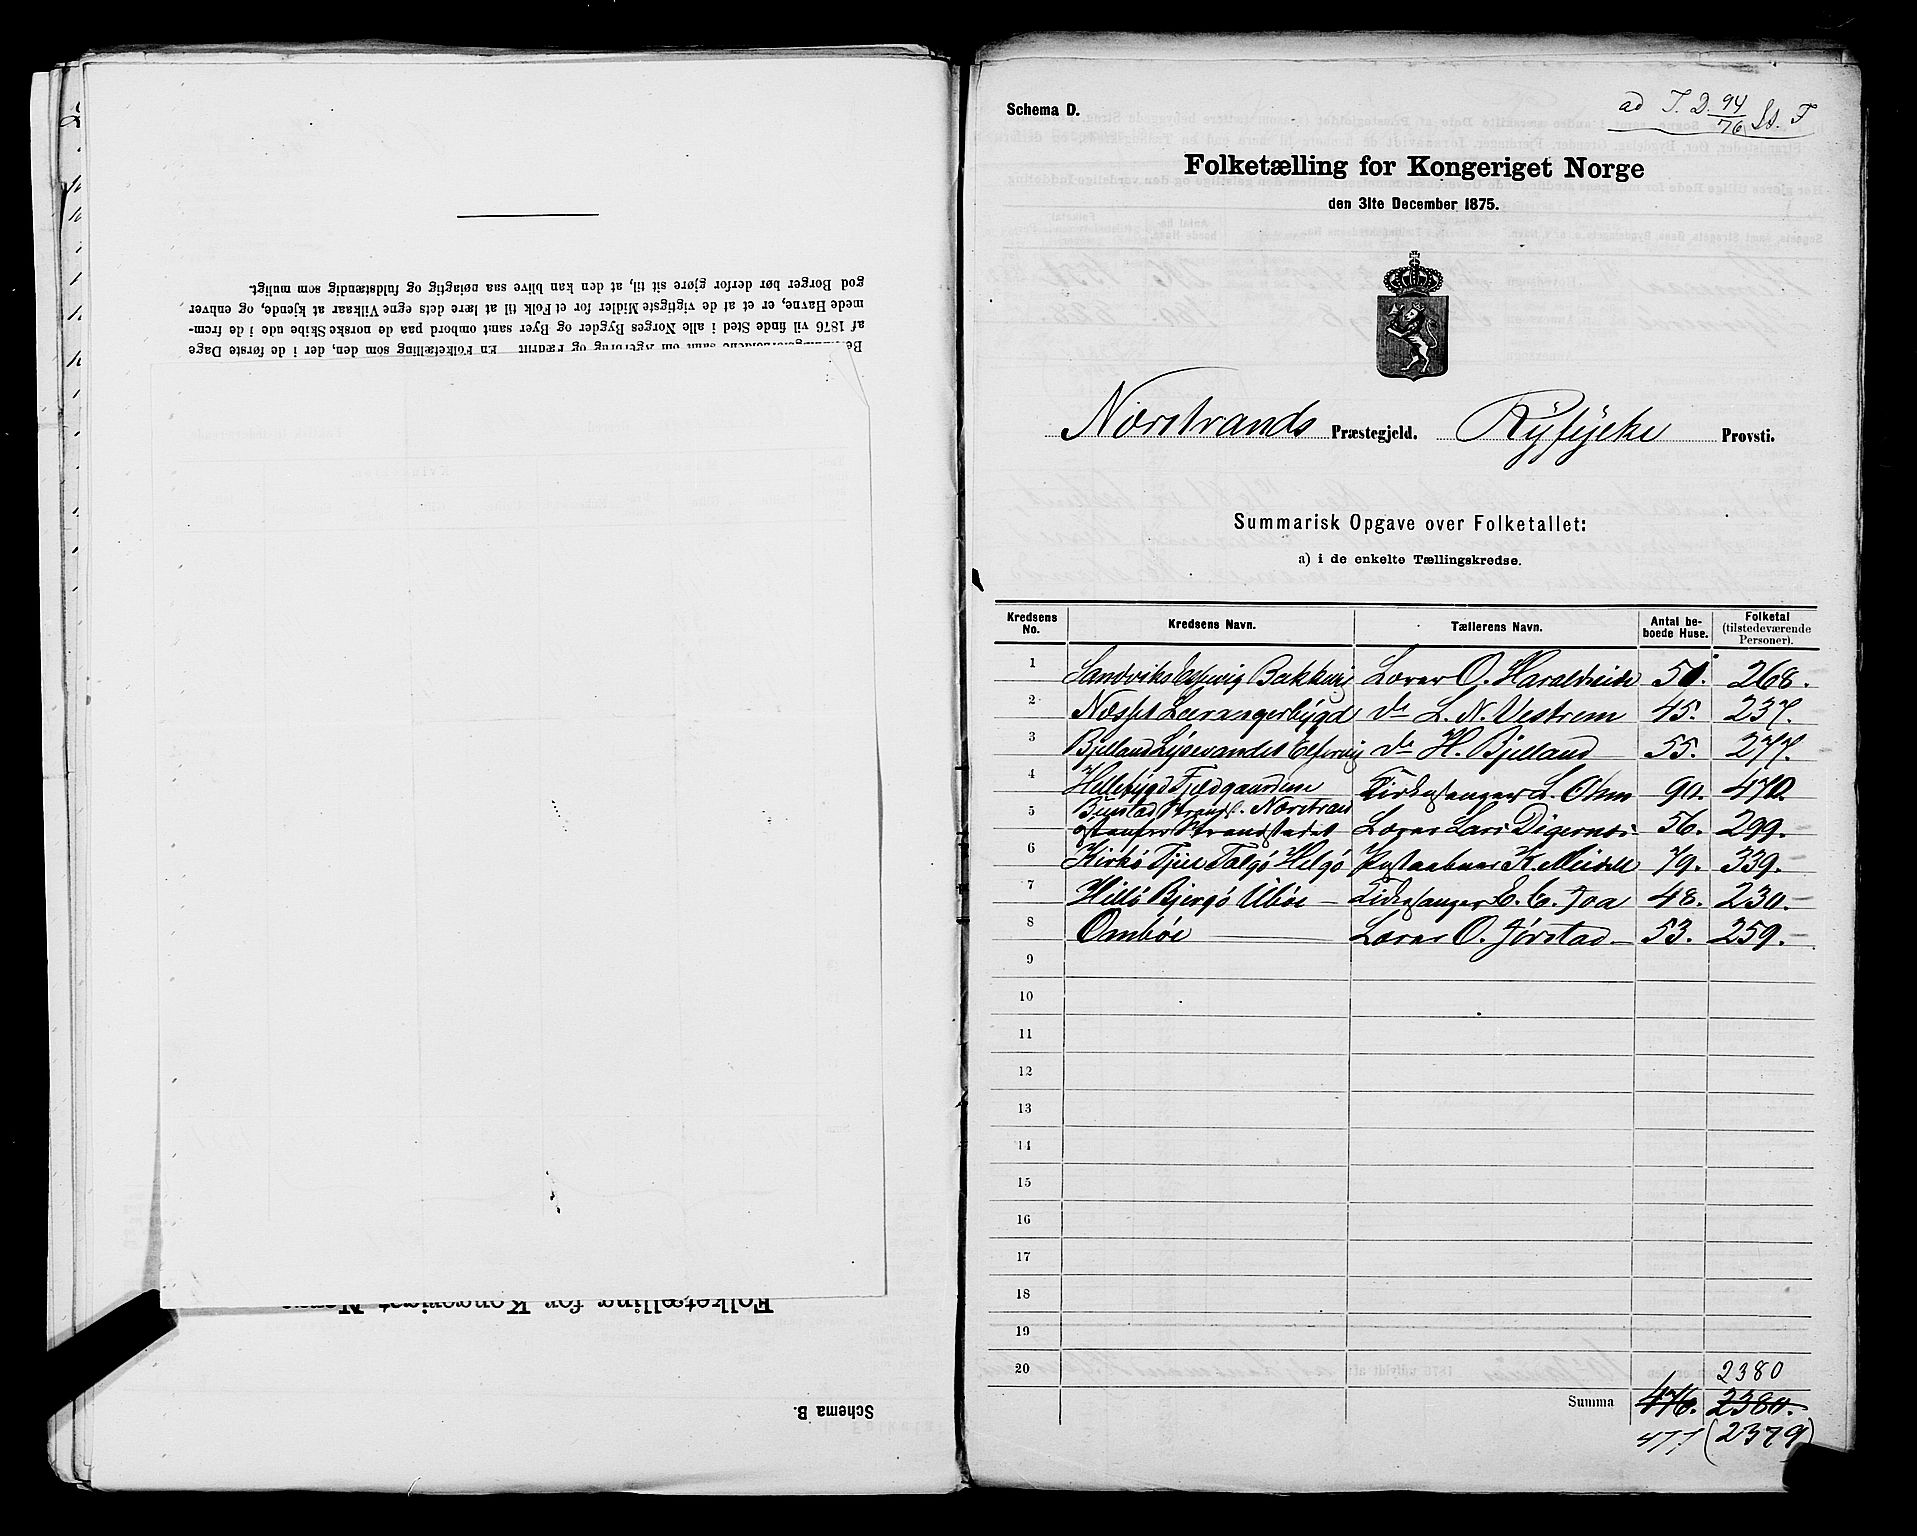 god Borger bør derfor gjøre sit til, at den kan blive saa nøiagtig og fuldstændig som muligt.
mede Havne, er et af de vigtigste Midler for et Folk til at lære dets egne Vilkaar at kjende, og enhver
af 1876 vil finde Sted i alle Norges Bygder og Byer samt ombord paa de norske Skibe ude i de frem-
samt om Agerbrug og Fædrift En Folketælling som den, der i de første Dage
Folketælling for Kongeriget
Schema B.
Schema D.
ad J. D. 94/76
Folketælling for Kongeriget Norge
den 31te December 1875.
Nærstrands Præstegjeld. Ryfylke Provsti.
Summarisk Opgave over Folketallet:
a) i de enkelte Tællingskredse.
Kredsens No. Kredsens Navn. Tællerens Navn. Antal beboede Huse. Folketal (tilstedeværende Personer).
1 Bakkevig Lærer O. Haraldseide 51. 268.
2 Næsset Leerangerbygd do L. N. Vestrem 45. 237.
3 Bjelland do H. Bjelland 55. 277.
4 Kirkesanger L. Ohm 90. 470.
5 Nærstrand Strandstedet Lærer Lars Digernes 56. 299.
6 Talgø Helgø Postaabner K. Meidell 79. 339.
7 Bjergø Kirkesanger E. E. Foa 48. 230.
8 Ombøe Lærer O. Jørstad 53. 259.
9
10
11
12
13
14
15
16
17
18
19
20 2380
Summa 476. 2380.
477 (2379)